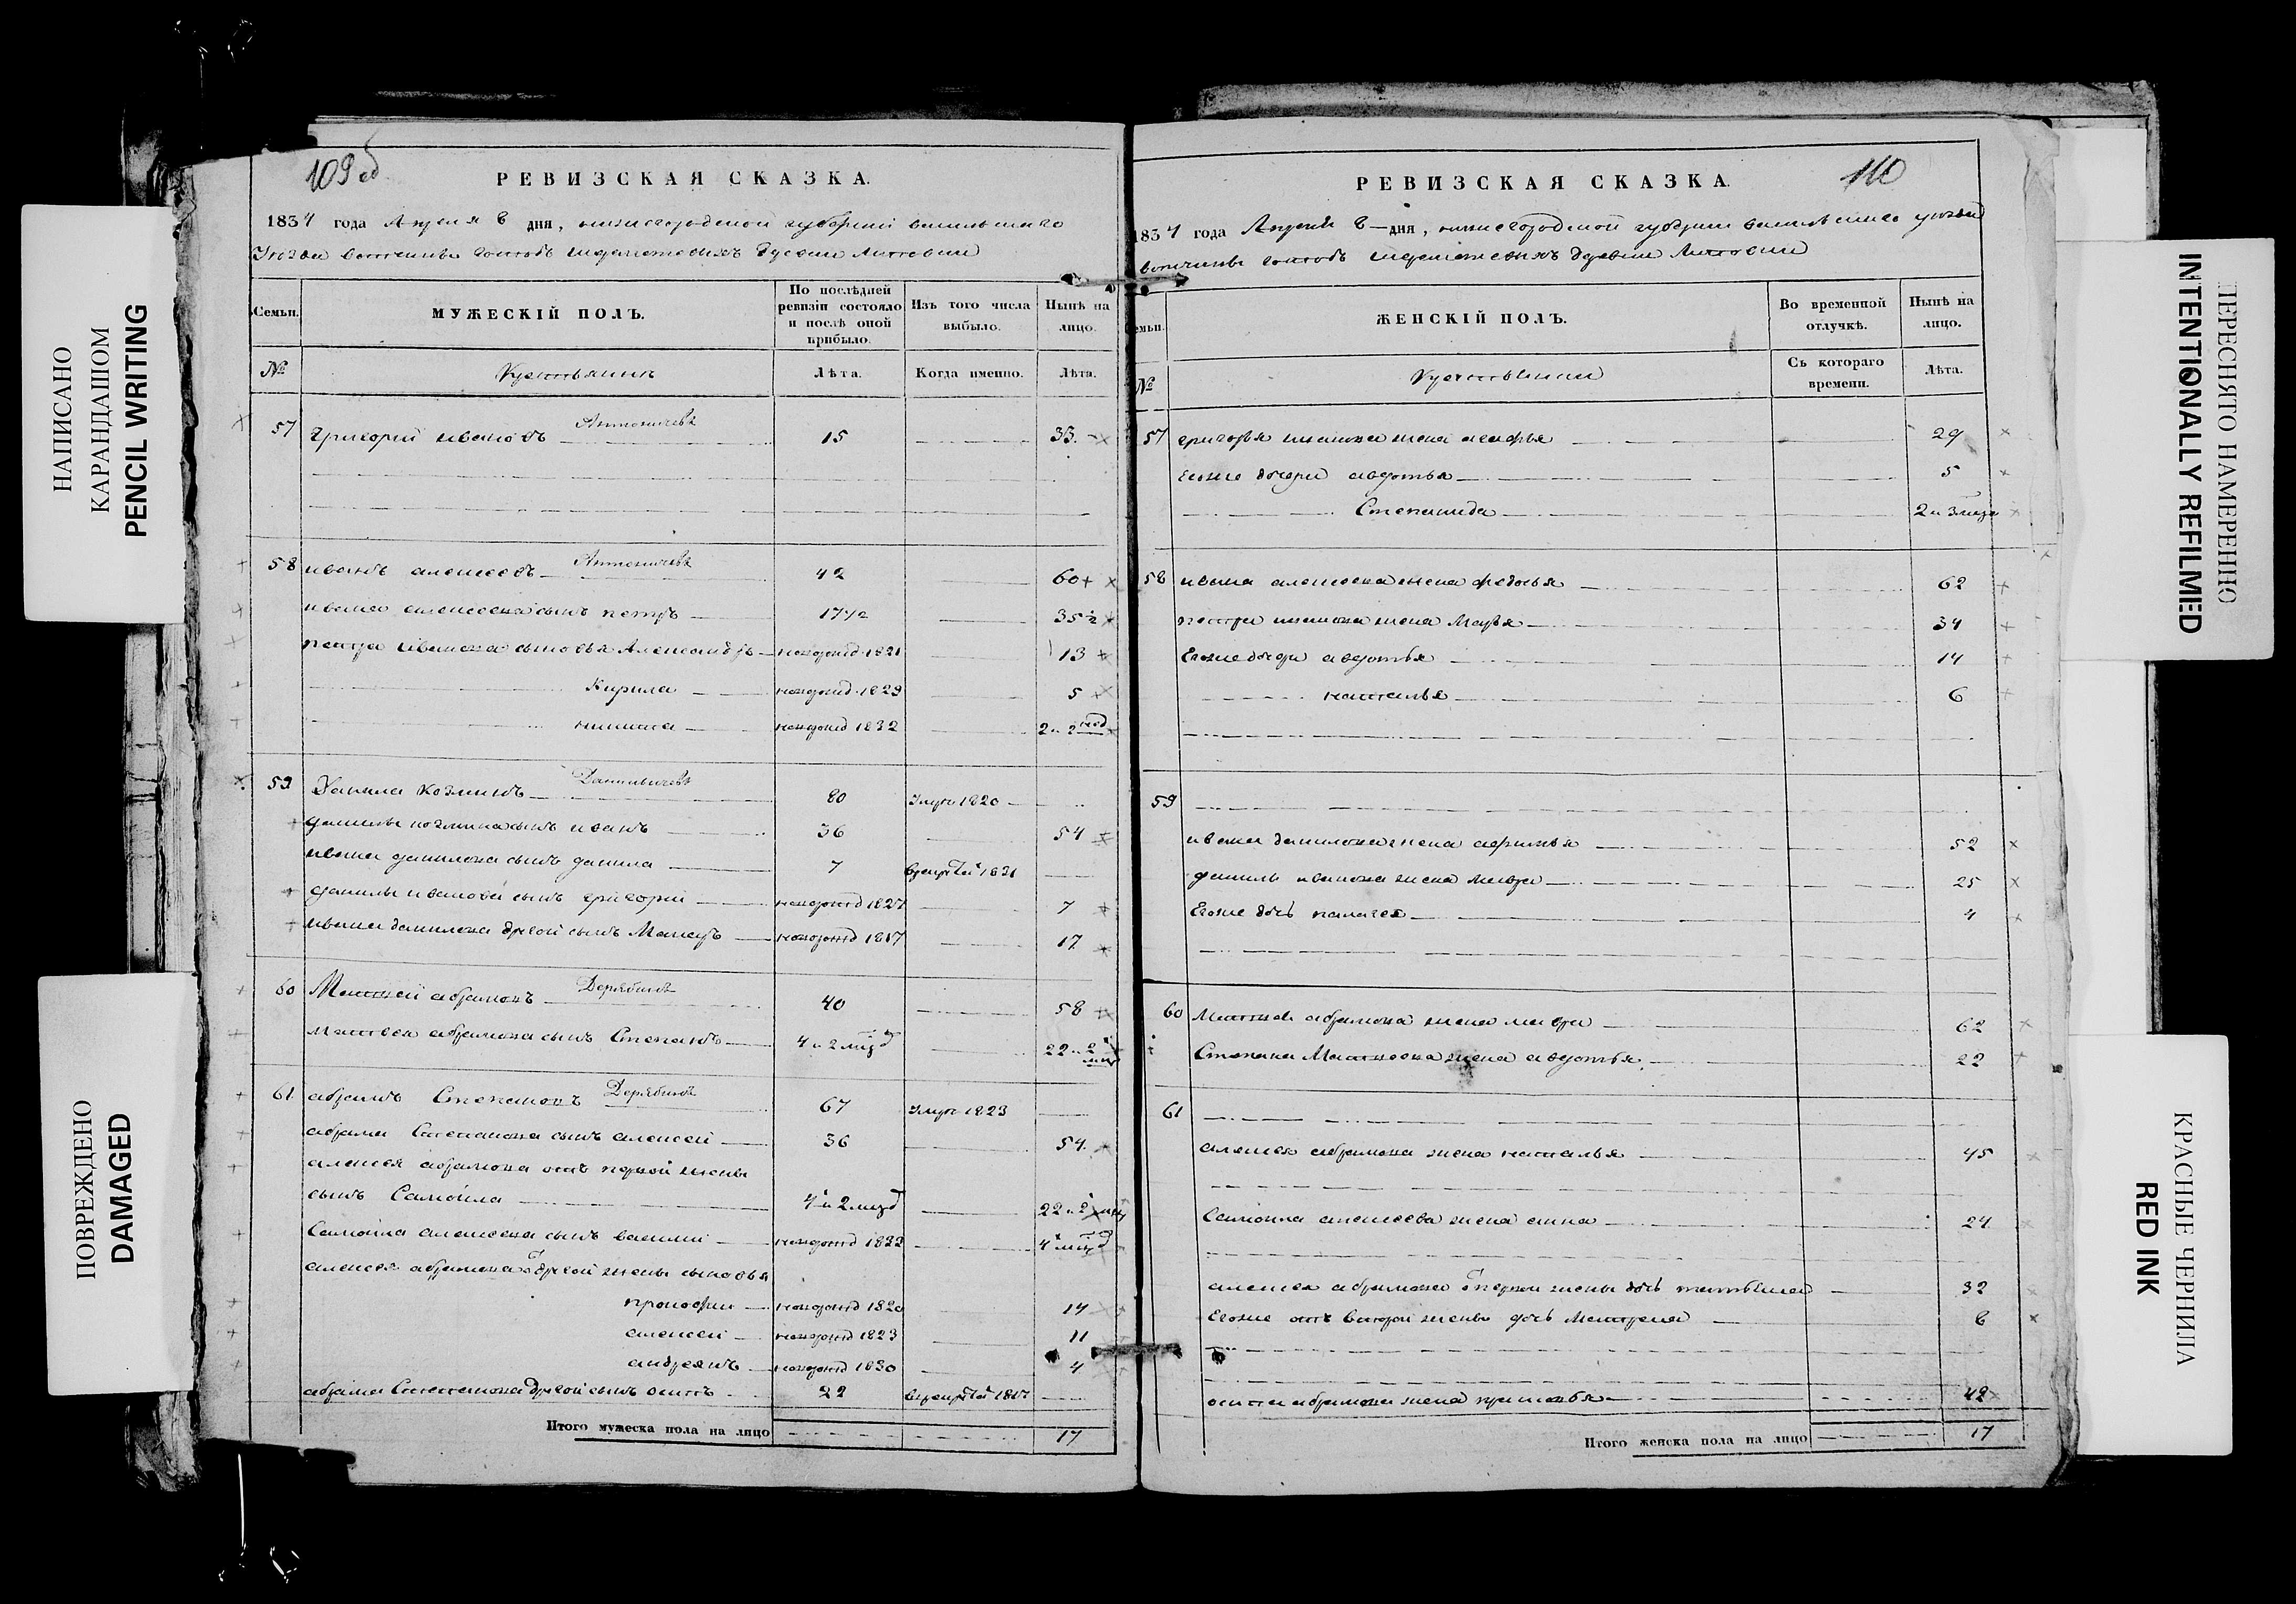 НАПИСАНО
КАРАНДАШОМ
PENCIL WRITING
ПОВРЕЖДЕНО
DAMAGED
109 об
РЕВИЗСКАЯ СКАЗКА.
1834 года Апреля 8 дня, нижегородской губернии васильскаго
Уезда вотчины
Семьи. МУЖЕСКІЙ ПОЛЪ. По послѣдней ревизіи состояло и послѣ оной прибыло. Изъ того числа выбыло. Нынѣ на лицо.
№ Крестьянинъ Лѣта. Когда именно. Лѣта.
57 григорий ивановъ Антоничевъ 15 33
58 иванъ алексеевъ Антоничевъ 42 60
ивана алексеева сынъ петръ 17 1/2 35 1/2
петра иванова сыновья Александръ новорожд 1821 13
Кирила новорожд 1829 5
никита новорожд 1832 2 и 2 нед
59 Данила Козминъ Даниличевъ 80 Умре 1820
данилы козмина сынъ иванъ 36 54
ивана данилова сынъ данила 7 1831
данилы иванова сынъ григорий новорожд 1827 7
ивана данилова другой сынъ новорожд 1817 17
60 Матвей абрамовъ Дерябинъ 40 58
матвея абрамова сынъ Степанъ 4 и 2 мцд 22 и 2 мцд
61 абрамъ Степановъ Дерябинъ 67 Умре 1823
абрама Степанова сынъ алексей 36 54
алексея абрамова отъ первой жены
сынъ Самойла 4 и 2 мцд 22 и 2 мцд
Самойла алексеева сынъ василий новорожд 4 мцд
алексея абрамова от другой жены сыновья
прокофий новорожд 1820 14
алексей новорожд 1823 11
андреянъ новорожд 1830 4
абрама Степанова другой сынъ осипъ 22
Итого мужеска пола на лицо 17
110
РЕВИЗСКАЯ СКАЗКА.
1834 года Апреля 8 дня, нижегородской губернии васильскаго уезда
вотчины
Семьи. ЖЕНСКІЙ ПОЛЪ. Во временной отлучкѣ. Нынѣ на лицо.
№ Съ котораго времени. Лѣта.
57 григорья иванова жена агафья 29
Егоже дочери авдотья 5
Степанида 2 и 3 мцд
58 ивана алексеева жена федосья 62
петра иванова жена Марья 34
Егоже дочери авдотья 14
наталья 6
59
ивана данилова жена 52
данилы иванова жена мавра 25
Егоже дочь палагея 4
60 Матвея абрамова жена мавра 62
Степана Матвеева жена авдотья 22
61
алексея абрамова жена наталья 45
Самойла алексеева жена анна 24
алексея абрамова от первой жены дочь 32
Егоже отъ второй жены дочь Матрена 8
осипа абрамова жена 42
Итого женска пола на лицо 17
ПЕРЕСНЯТО НАМЕРЕННО
INTENTIONALLY REFILMED
КРАСНЫЕ ЧЕРНИЛА
RED INK